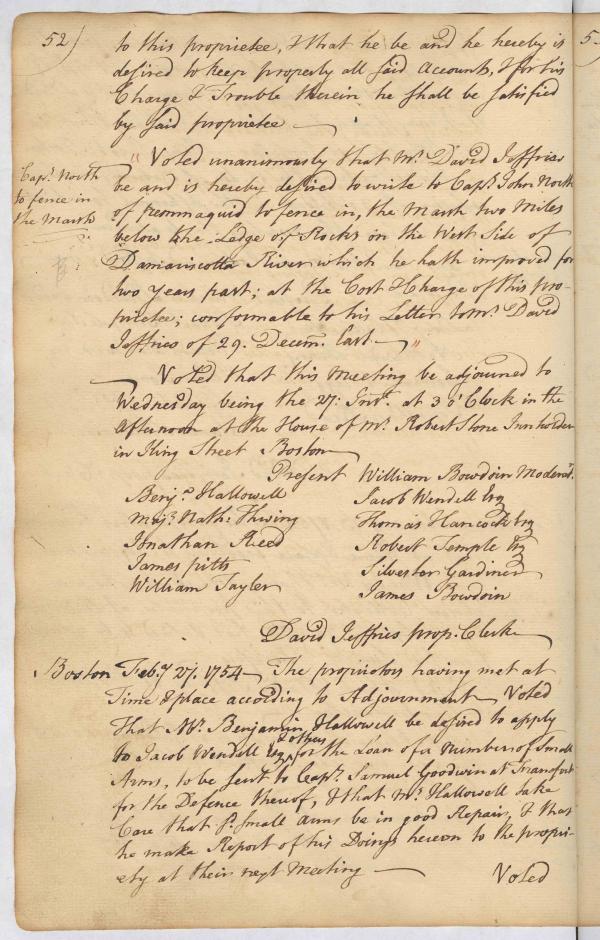 52)
to this proprietee, & that he be and he hereby is
desired to keep properly all said Accounts, & for his
Charge & Trouble therein he shall be satisfied
by said proprietee
Capt. North
to fence in
the Marsh
" Voted unanimously that Mr. David Jeffries
be and is hereby desired to write to Capt. John North
of Pemmaquid to fence in, the Marsh two Miles
below the Ledge of Rocks on the West Side of
Damariscotta River which he hath improved for
two Years past; at the Cost & Charge of this pro-
prietee; conformable to his Letter to Mr. David
Jeffries of 29. Decem. last "
Voted that this Meeting be adjourned to
Wednesday being the 27: Inst. at 3 o'Clock in the
Afternoon at the House of Mr. Robert Stone Innholder
in King Street Boston
Present William Bowdoin Moderat.
Benj.a Hallowell Jacob Wendell Esq
Maj.r Nath: Thwing Thomas Hancock Esq
Jonathan Reed Robert Temple Esq
James Pitts Silvester Gardiner
William Tayler James Bowdoin
David Jeffries prop. Clerk
Boston Feb.y 27. 1754 The proprietors having met at
Time & place according to Adjournment Voted
That Mr. Benjamin Hallowell be desired to apply
to Jacob Wendell Esq & others for the Loan of a Number of Small
Arms, to be sent to Capt. Samuel Goodwin at Frankfort
for the Defence thereof, & that Mr. Hallowell take
Care that sd. Small Arms be in good Repair, & that
he make Report of his Doings hereon to the proprie-
ety at their next Meeting
Voted